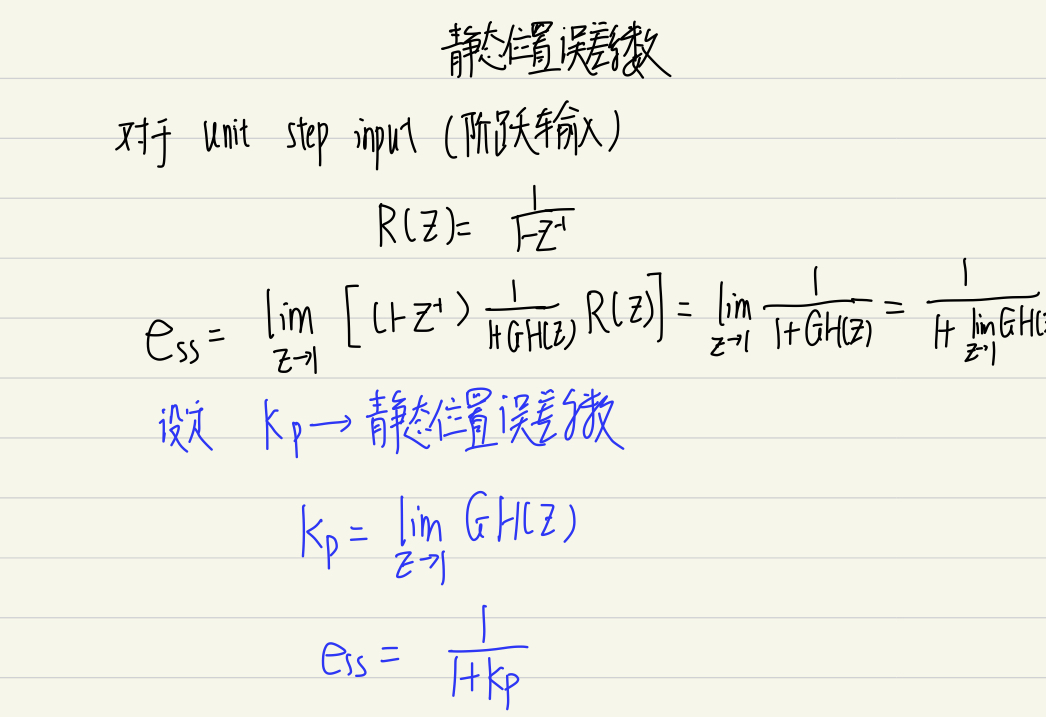 静态位置误差系数
对于 unit step input (阶跃输入)
R(Z)= 1/(1-Z⁻¹)
e_ss = lim_{Z→1} [(1-Z⁻¹) 1/(1+GH(Z)) R(Z)] = lim_{Z→1} 1/(1+GH(Z)) = 1/(1+ lim_{Z→1} GH(Z
设定 Kp→静态位置误差系数
Kp = lim_{Z→1} GH(Z)
e_ss = 1/(1+Kp)